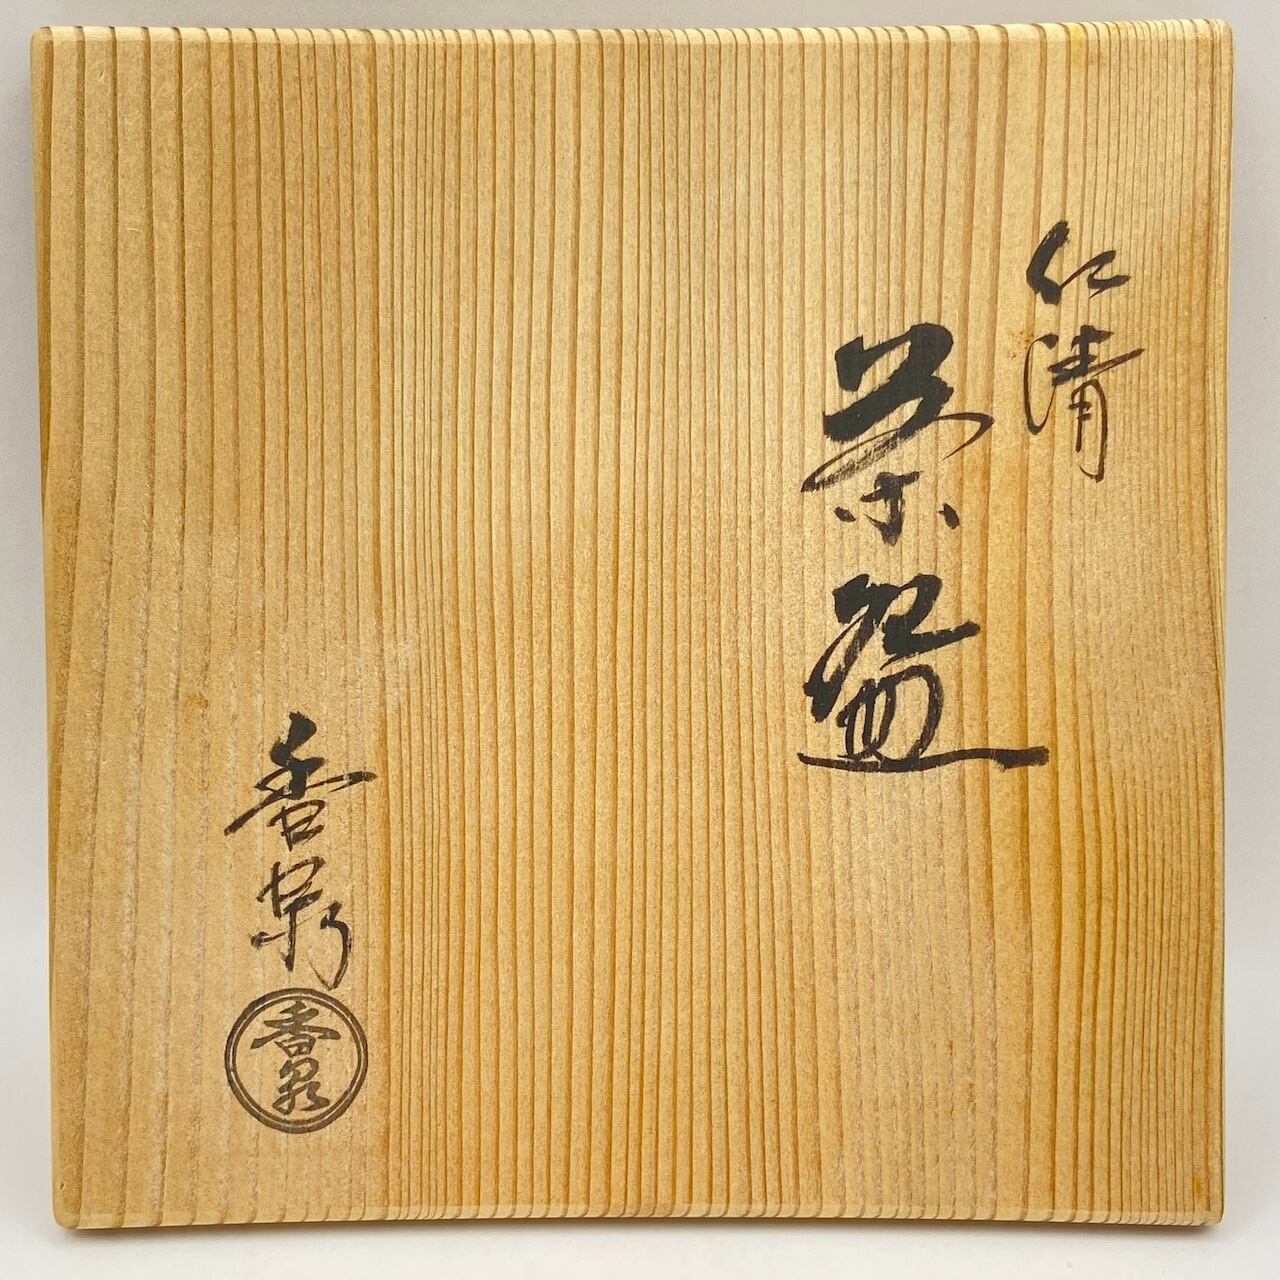 仁清
茶盌
香泉
香泉